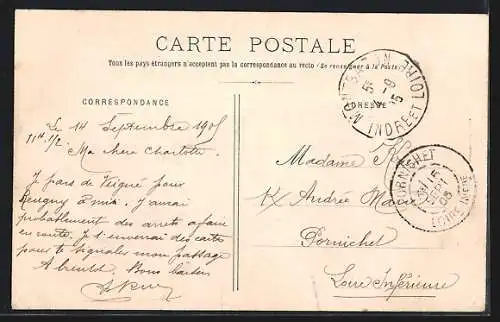 CARTE POSTALE
Tous les pays étrangers n'acceptent pas la correspondance au recto (Se renseigner à la Poste)
CORRESPONDANCE
ADRESSE
Le 14 Septembre 1905
11H 1/2
Ma chère Charlotte
Je pars de Teigné pour
Reugny à midi. J'aurai
probablement des arrets a faire
en route. Je t'enverrai des cartes
pour te signaler mon passage
A bientot. Bons baisers
Madame
André Marie
Pornichet
Loire Inférieure
INDRE ET LOIRE
PORNICHET
15
SEPT
05
LOIRE INFRE